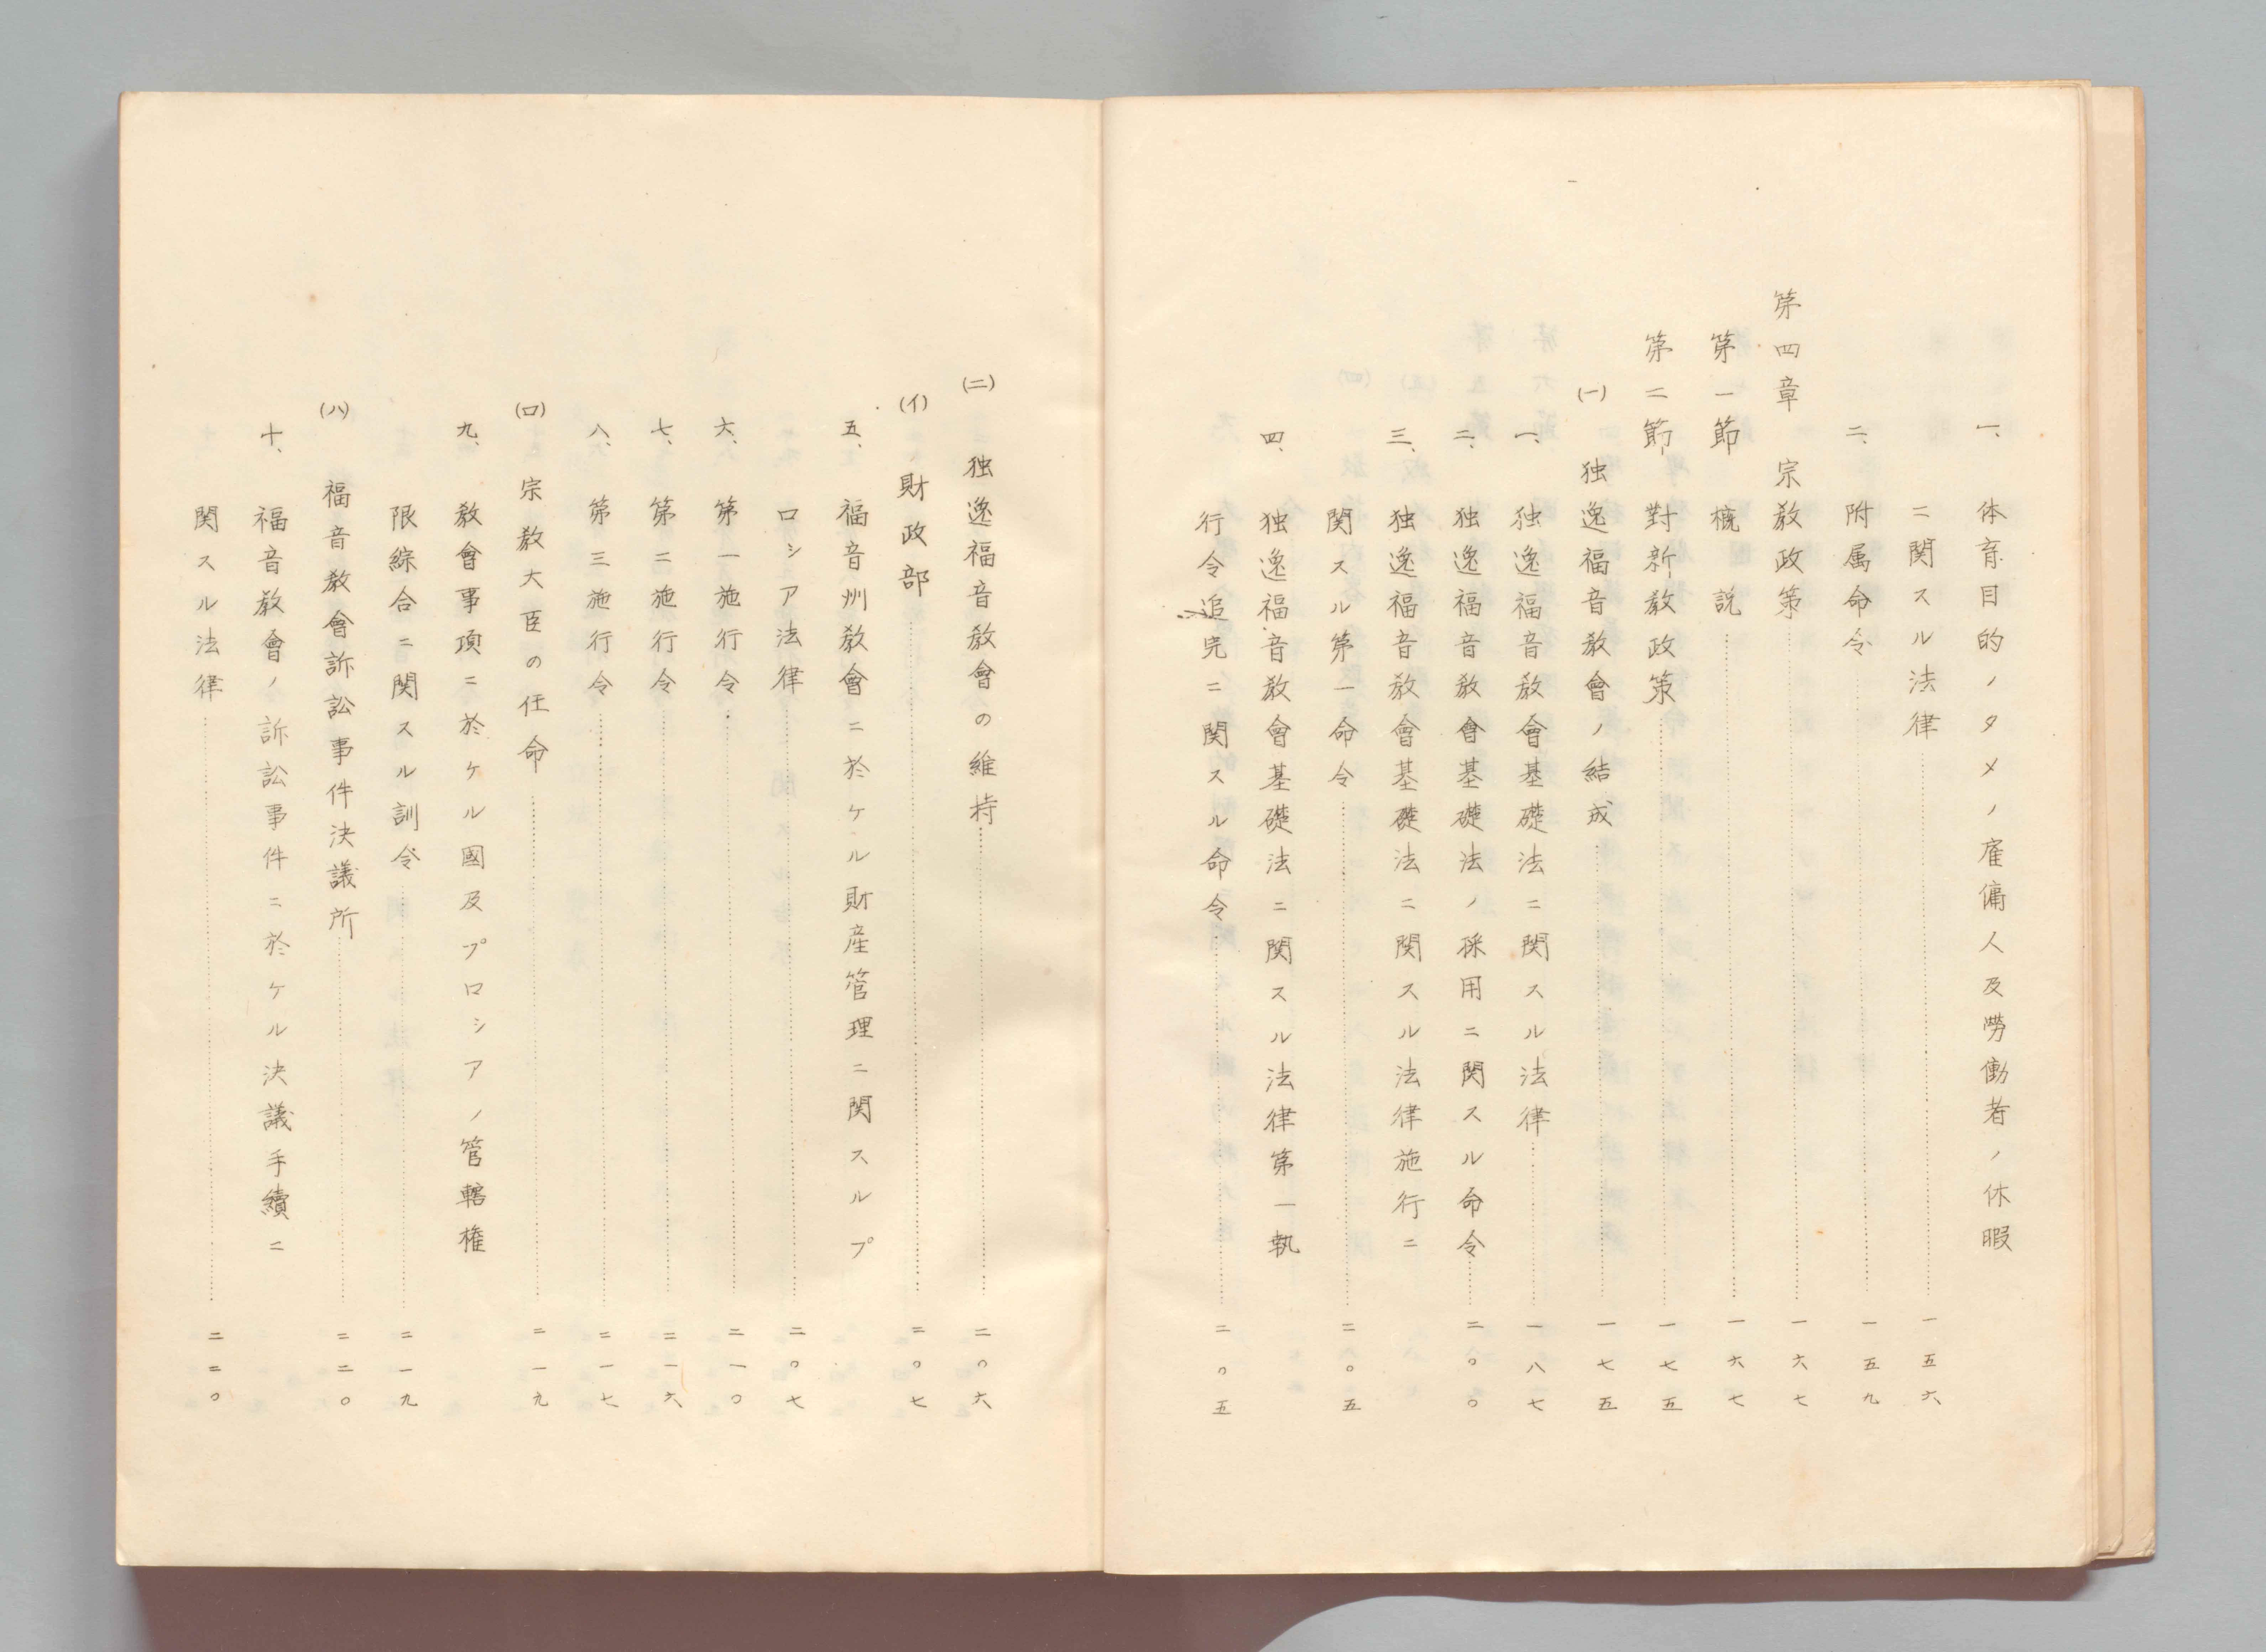 一、体育目的ノタメノ雇傭人及労働者ノ休暇
ニ関スル法律……一五六
二、附属命令……一五九
第四章 宗教政策……一六七
第一節 概説……一六七
第二節 對新教政策……一七五
(一) 独逸福音教會ノ結成……一七五
一、独逸福音教會基礎法ニ関スル法律……一八七
二、独逸福音教會基礎法ノ採用ニ関スル命令……二〇〇
三、独逸福音教會基礎法ニ関スル法律施行ニ
関スル第一命令……二〇五
四、独逸福音教會基礎法ニ関スル法律第一執
行令追完ニ関スル命令……二〇五
(二) 独逸福音教會の維持……二〇六
(イ) 財政部……二〇七
五、福音州教會ニ於ケル財産管理ニ関スルプ
ロシア法律……二〇七
六、第一施行令……二一〇
七、第二施行令……二一六
八、第三施行令……二一七
(ロ) 宗教大臣の任命……二一九
九、教會事項ニ於ケル國及プロシアノ管轄権
限綜合ニ関スル訓令……二一九
(ハ) 福音教會訴訟事件決議所……二二〇
十、福音教會ノ訴訟事件ニ於ケル決議手續ニ
関スル法律……二二〇